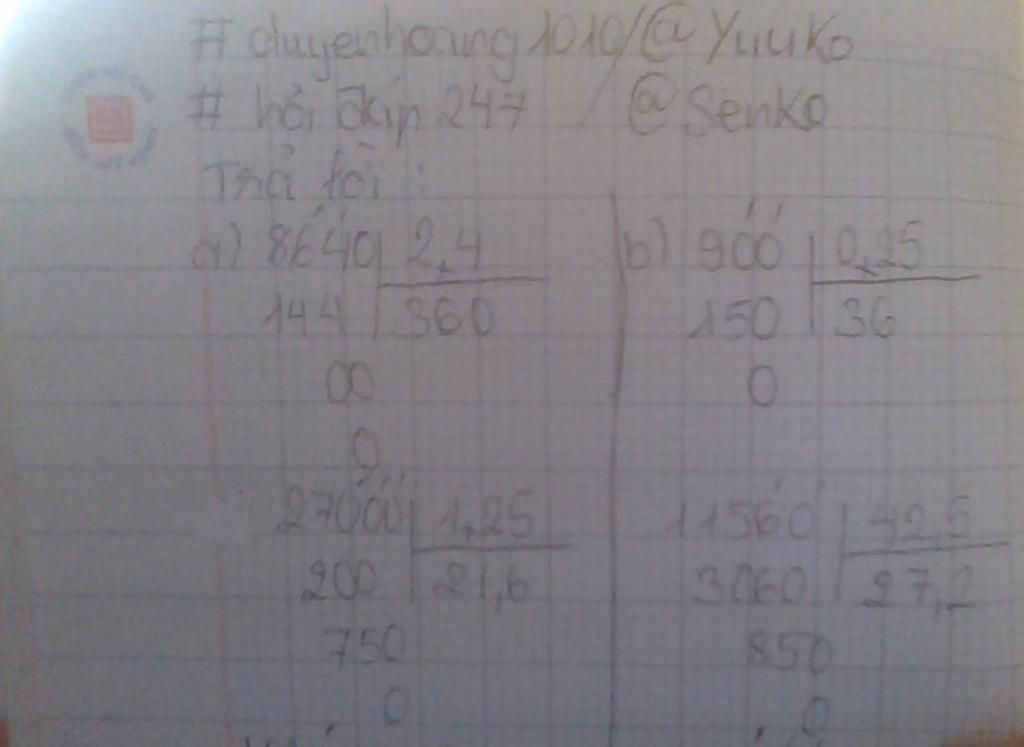 #duyenhoang1010/@Yuuko
# hỏi đáp 247 / @Senko
Trả lời :
a) 8640 2,4
144 360
00
0
b) 900 0,25
150 36
0
2700 1,25
200 21,6
750
0
11560 42,5
3060 27,2
850
0